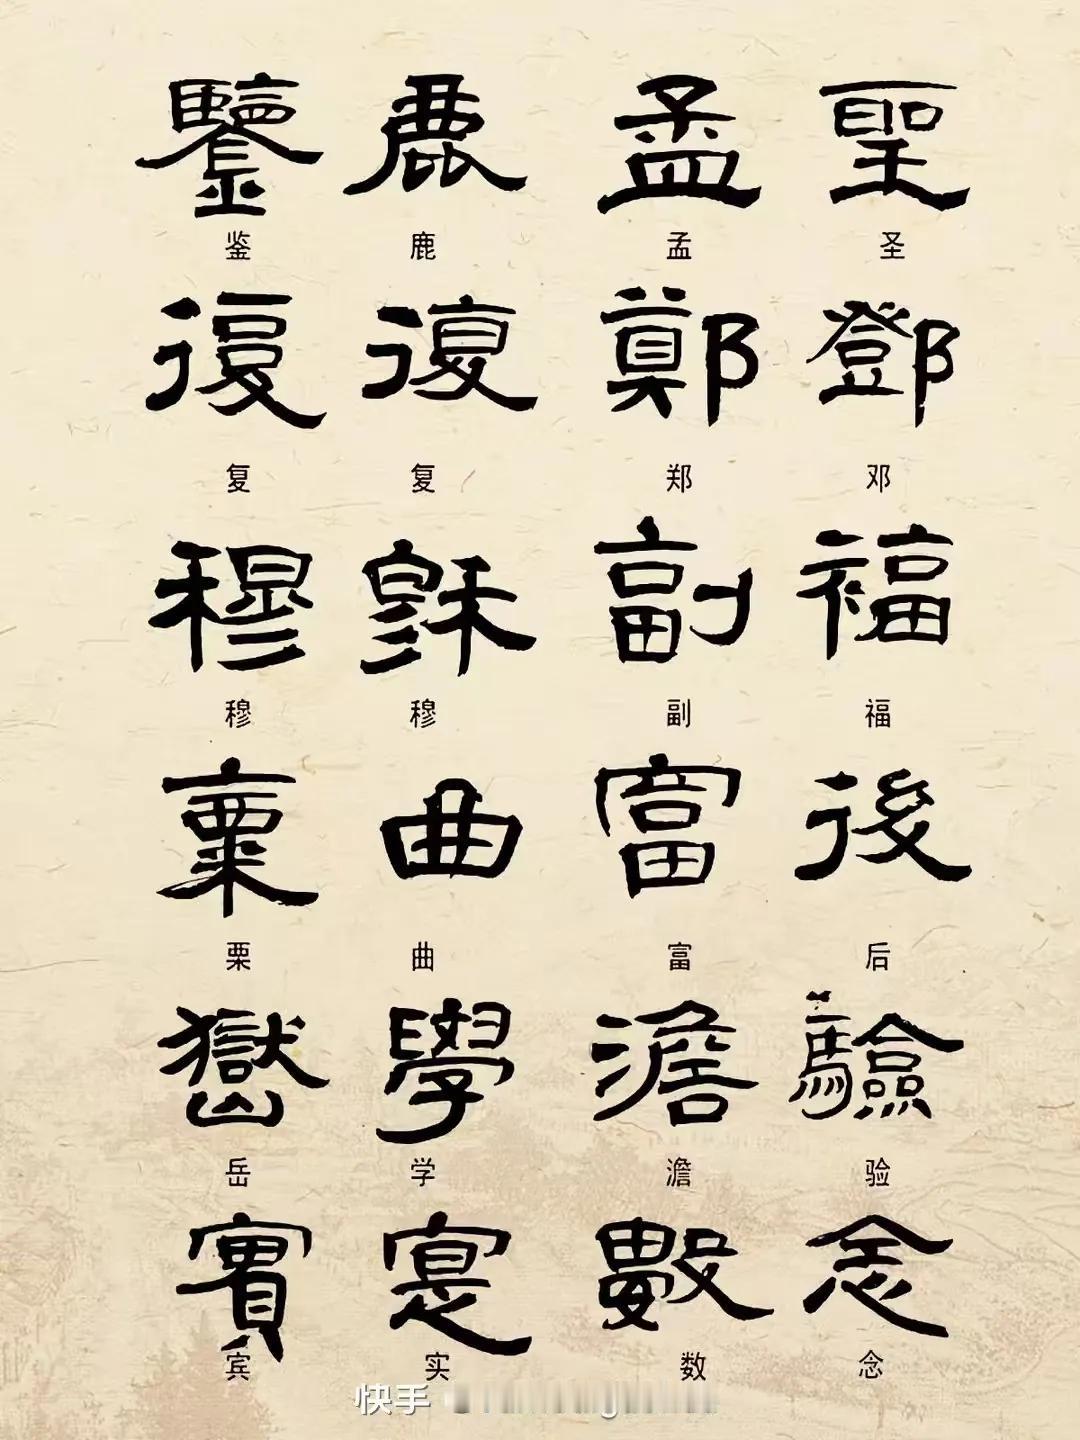 鑒 鹿 孟 聖
鉴 鹿 孟 圣
復 復 鄭 鄧
复 复 郑 邓
穆 穆 副 福
穆 穆 副 福
曲 富 後
栗 曲 富 后
嶽 學 澹 驗
岳 学 澹 验
賓 寔 數 念
宾 实 数 念
快手